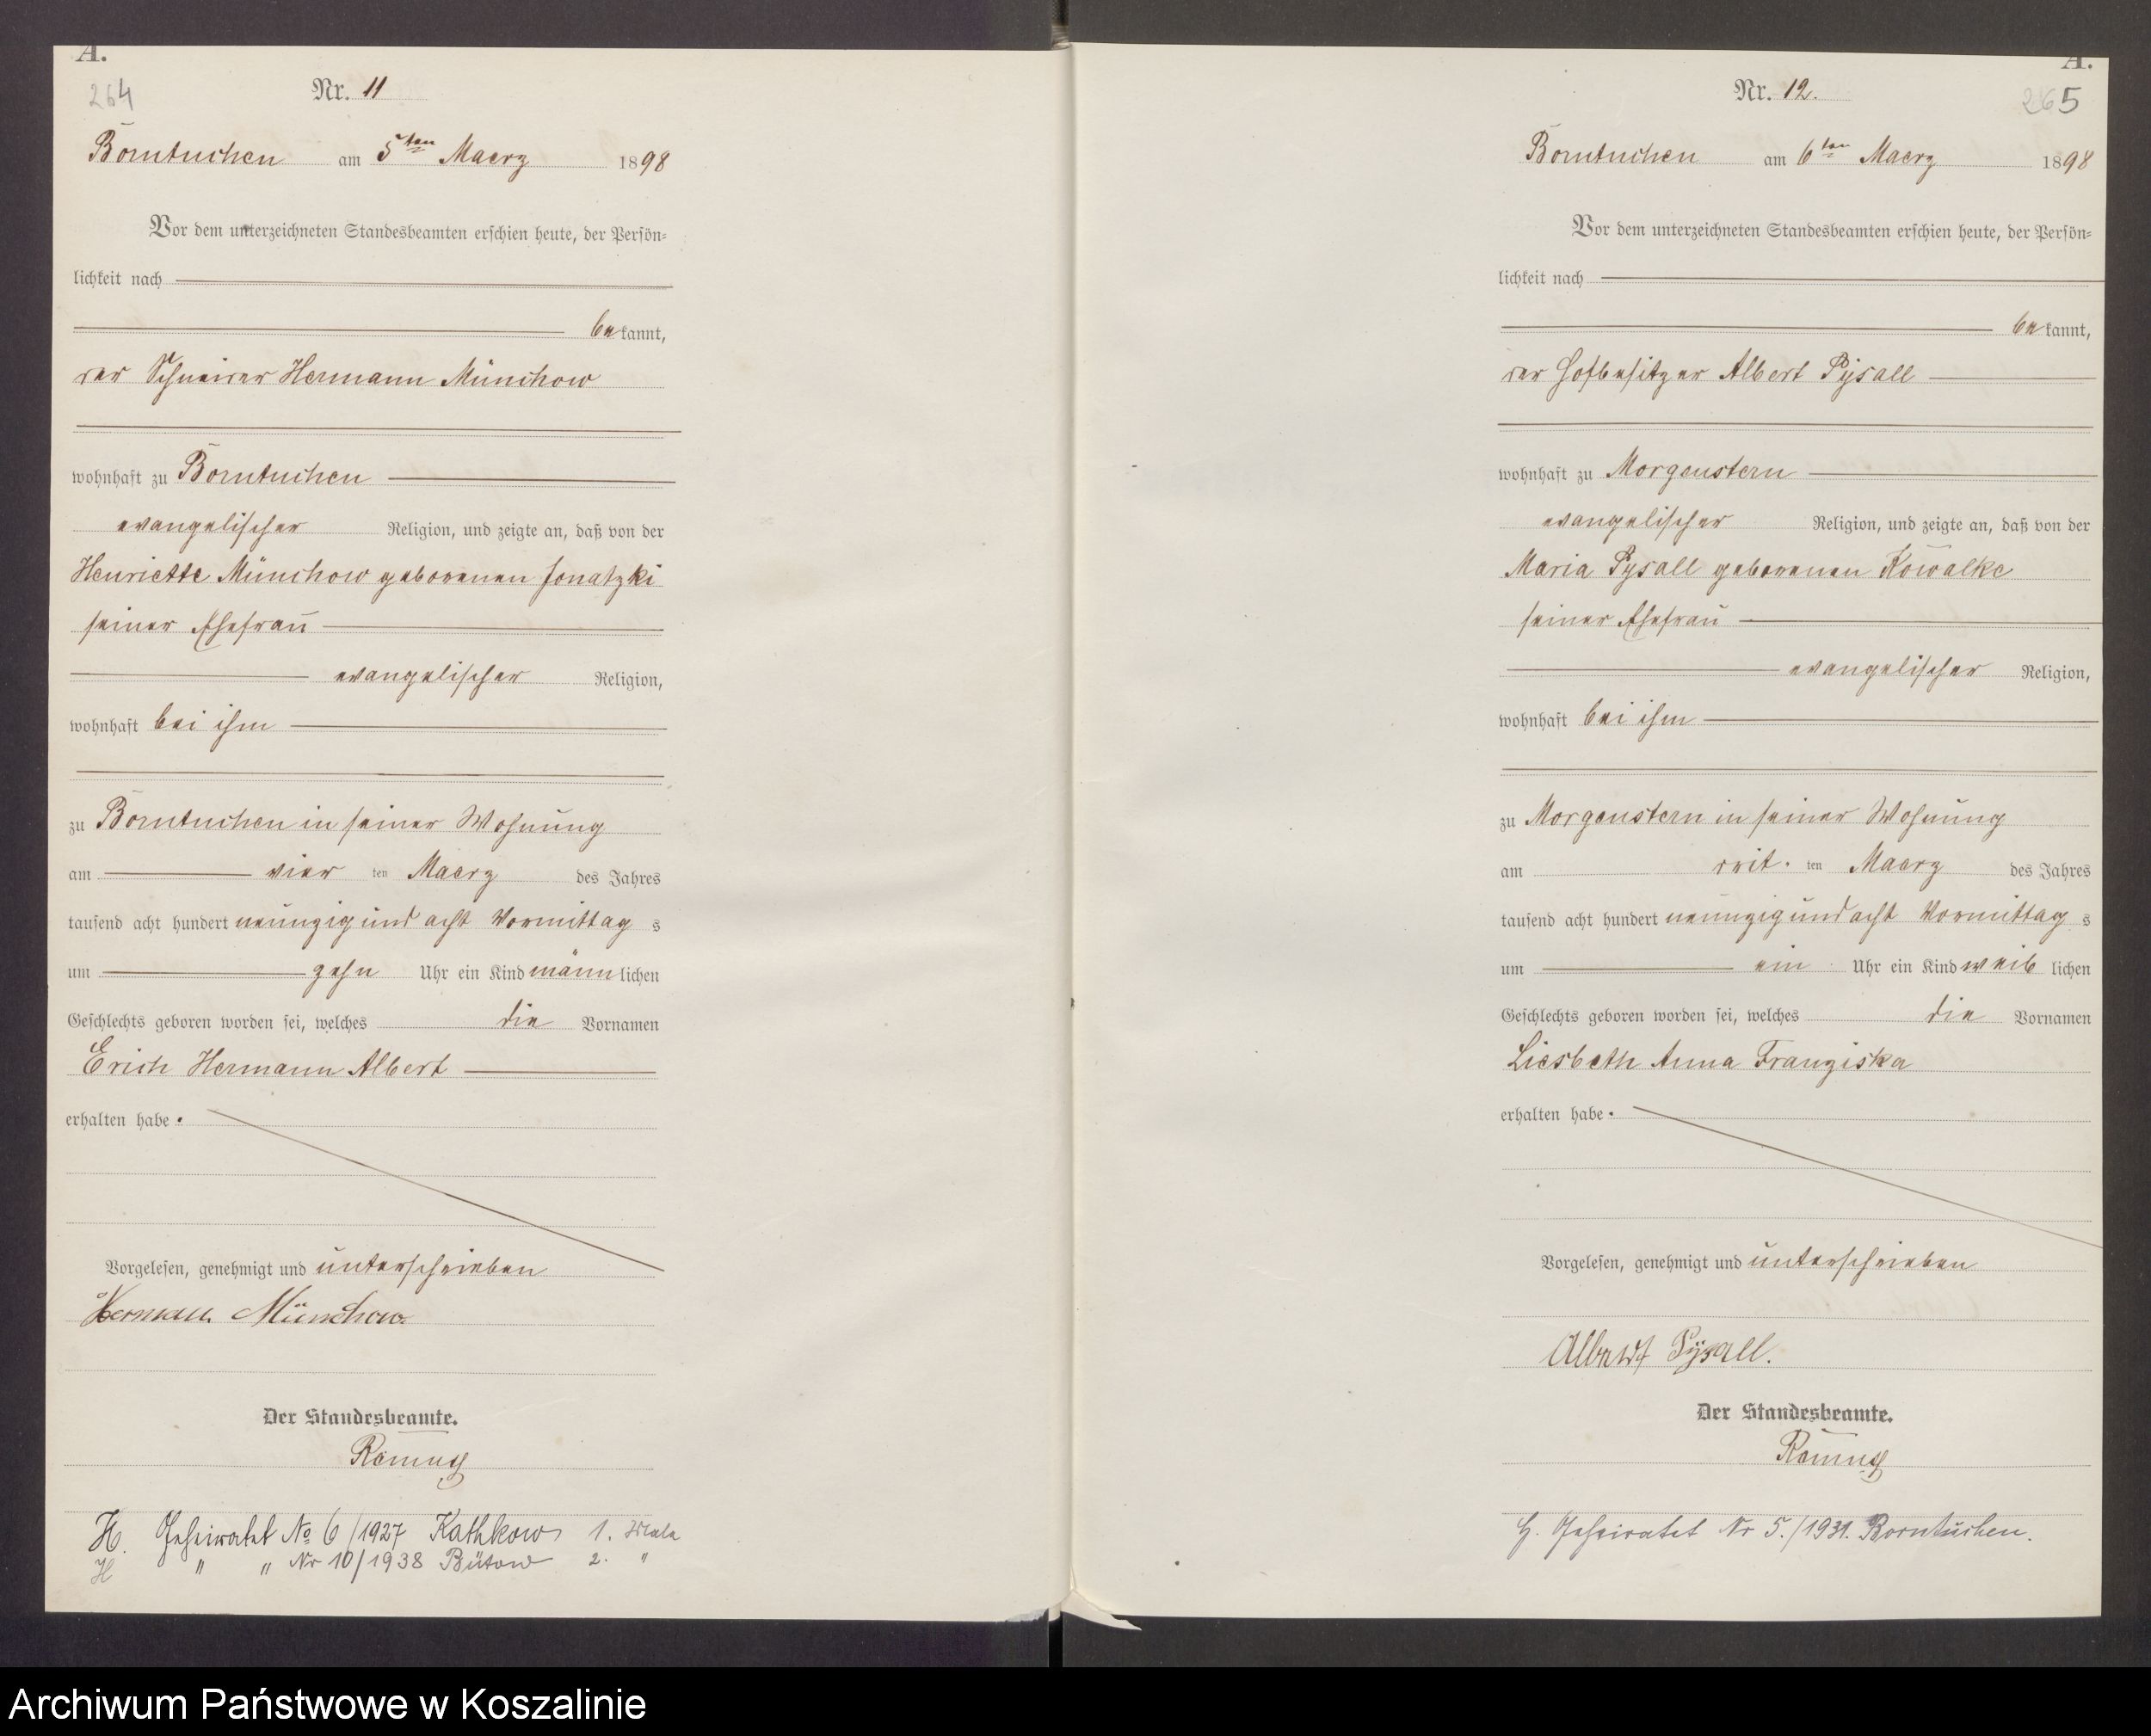 A.
264
Nr. 11
Borntuchen am 5ten Maerz 1898
Vor dem unterzeichneten Standesbeamten erschien heute, der Persön-
lichkeit nach
bekannt,
der Schneider Hermann Münchow
wohnhaft zu Borntuchen
evangelischer Religion, und zeigte an, daß von der
Henriette Münchow geborenen Jonatzki
seiner Ehefrau
evangelischer Religion,
wohnhaft bei ihm
zu Borntuchen in seiner Wohnung
am vier ten Maerz des Jahres
tausend acht hundert neunzig und acht Vormittag s
um zehn Uhr ein Kind männlichen
Geschlechts geboren worden sei, welches die Vornamen
Erich Hermann Albert
erhalten habe.
Vorgelesen, genehmigt und unterschrieben
Hermann Münchow
Der Standesbeamte.
H. Geheiratet No 6/1927 Kathkow 1. Male
H " " Nr 10/1938 Bütow 2. "
A.
265
Nr. 12.
Borntuchen am 6ten Maerz 1898
Vor dem unterzeichneten Standesbeamten erschien heute, der Persön-
lichkeit nach
bekannt,
der Hofbesitzer Albert Pysall
wohnhaft zu Morgenstern
evangelischer Religion, und zeigte an, daß von der
Maria Pysall geborenen Kowalke
seiner Ehefrau
evangelischer Religion,
wohnhaft bei ihm
zu Morgenstern in seiner Wohnung
am drit. ten Maerz des Jahres
tausend acht hundert neunzig und acht Vormittag s
um ein Uhr ein Kind weib lichen
Geschlechts geboren worden sei, welches die Vornamen
Liesbeth Anna Franziska
erhalten habe.
Vorgelesen, genehmigt und unterschrieben
Albert Pÿsall.
Der Standesbeamte.
H. Geheiratet Nr 5./1931. Borntuchen.
Archiwum Państwowe w Koszalinie